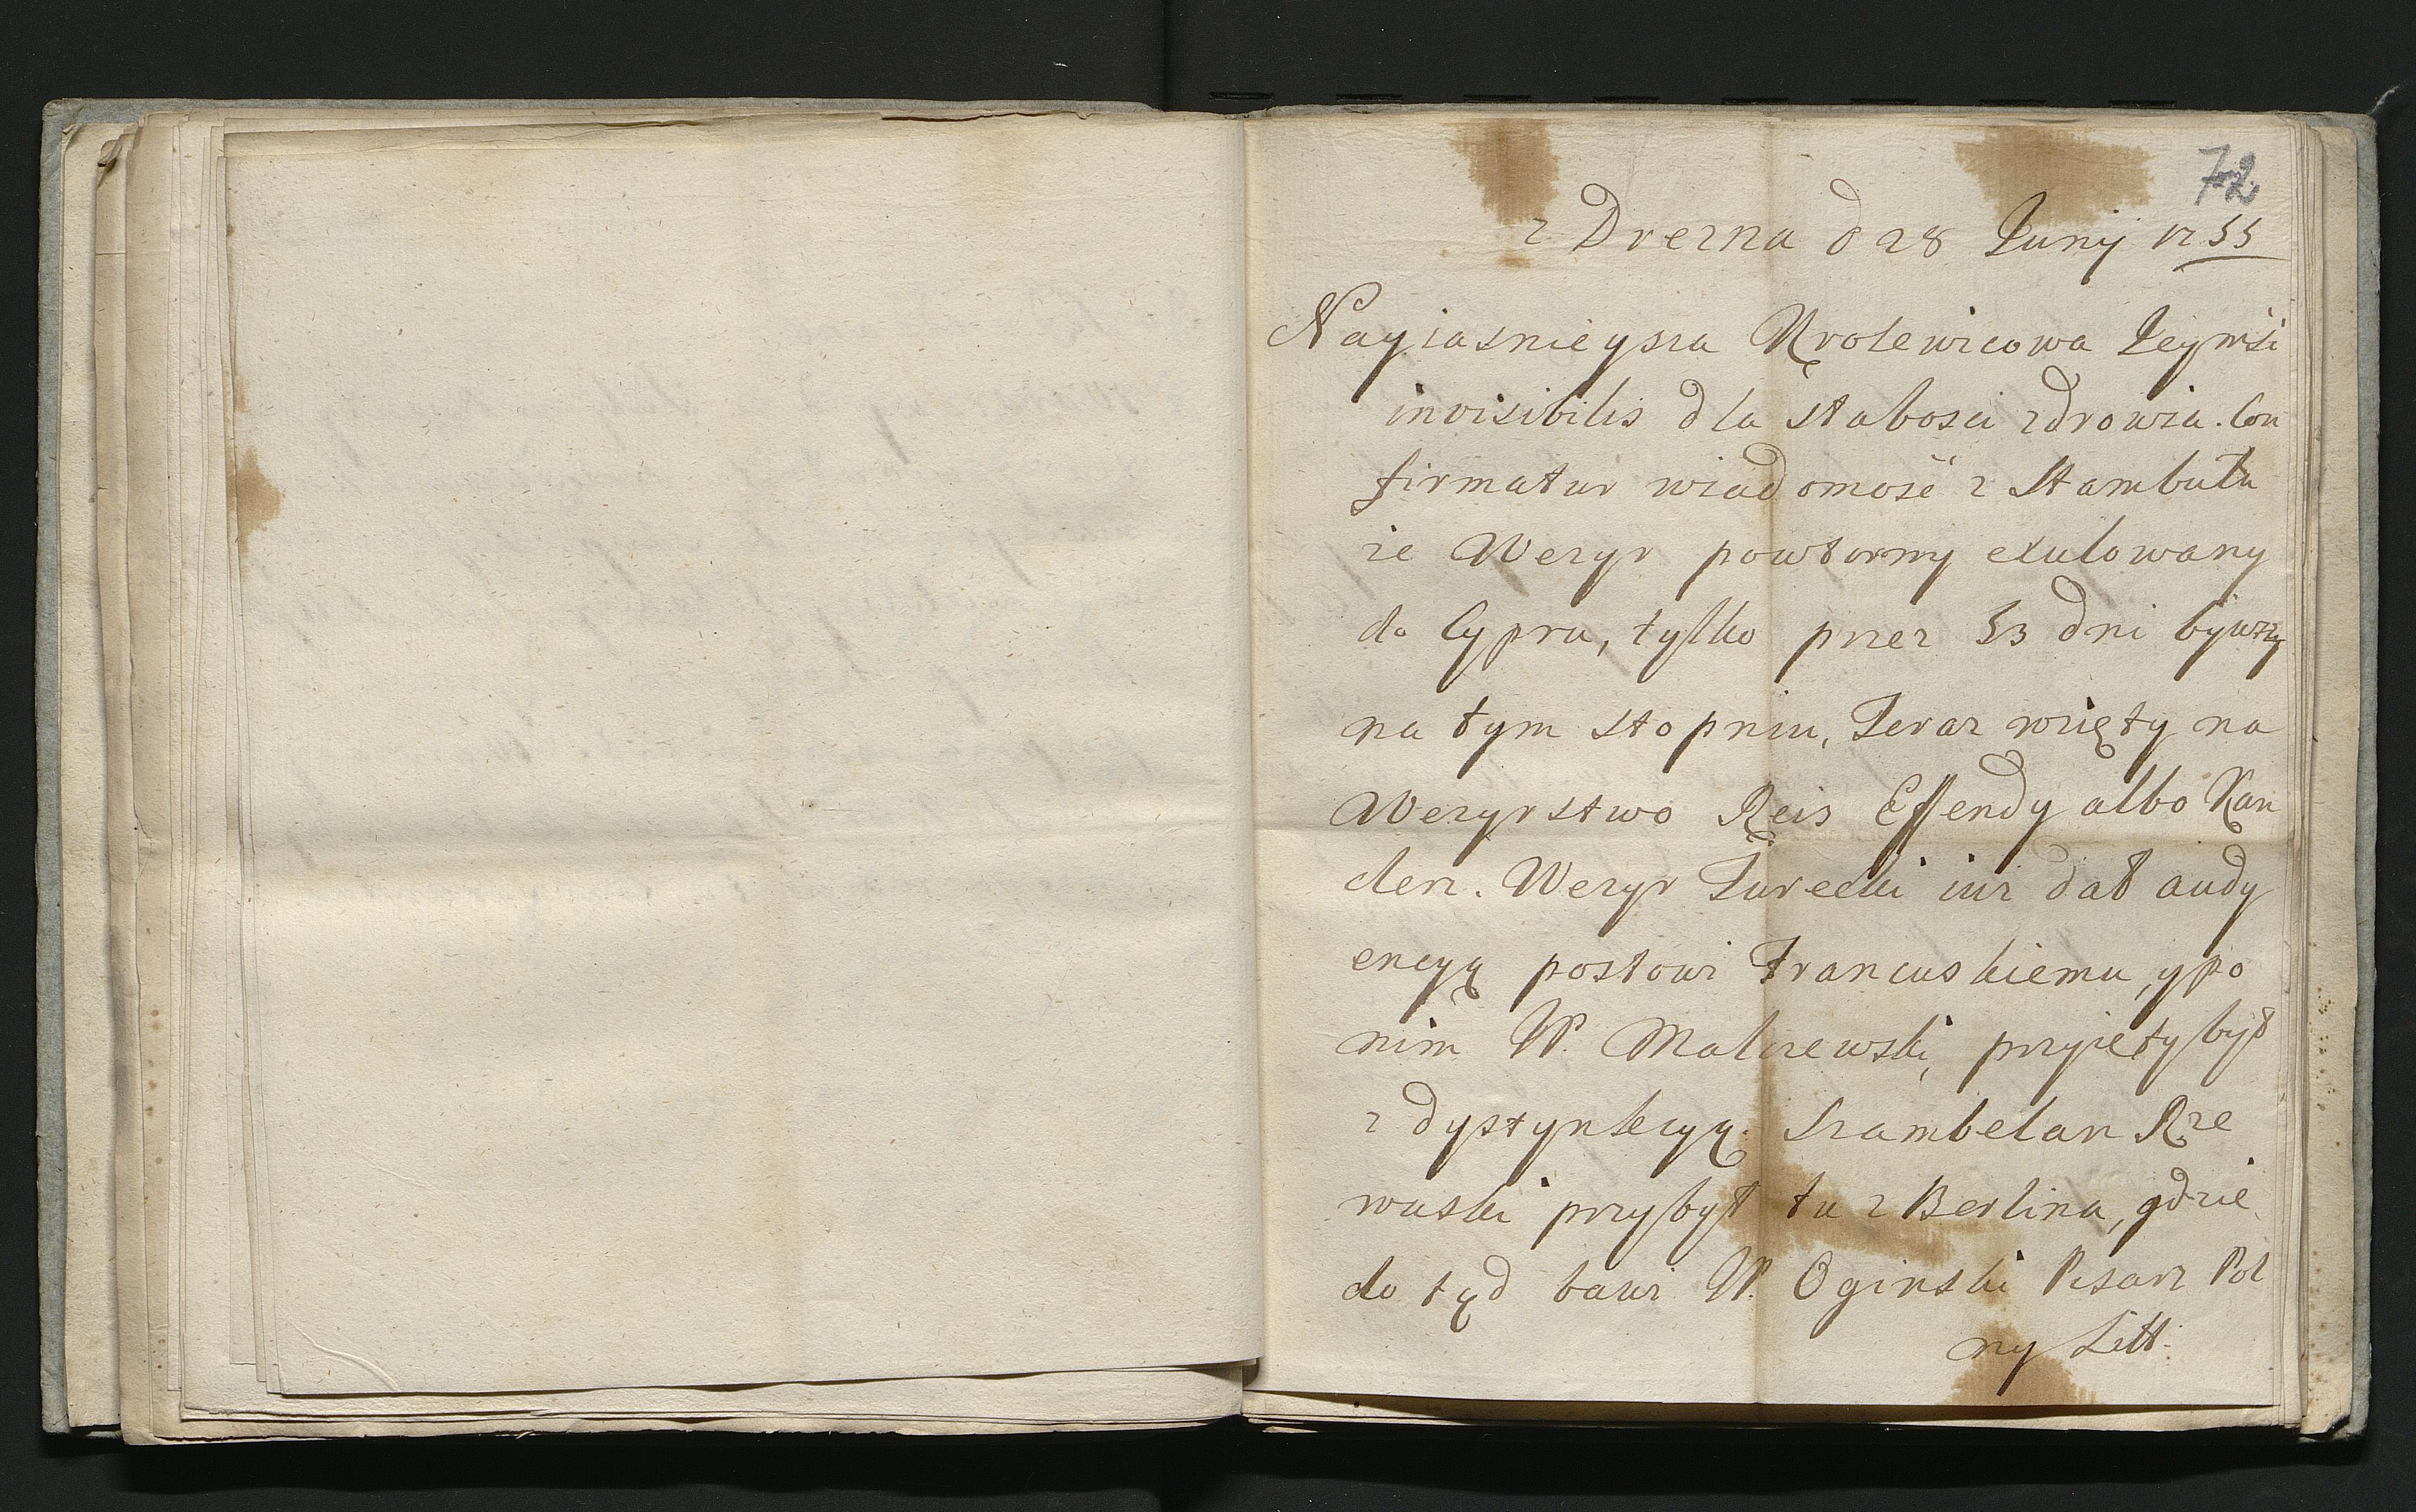 72
z Drezna d 28 Junij 1755
Nayiasnieysza Krolewicowa Jeymśi
invisibilis dla słabosci zdrowia. Con
firmatur wiadomość z Stambułu
ze Wezyr powtorny exulowany
do Cypru, tylko przez 53 dni bywszy
na tym stopniu, Teraz wzięty na
Wezyrstwo Reis Effendy albo Kan
clerz. Wezyr Turecki iuz dał audy
encyą posłowi Francuskiemu, y po
nim W. Malczewski, przyięty był
z dystynkcyą. Szambelan Rze
wuski przybył tu z Berlina, gdzie
do tąd bawi W. Oginski Pisarz Pol
ny Litt.